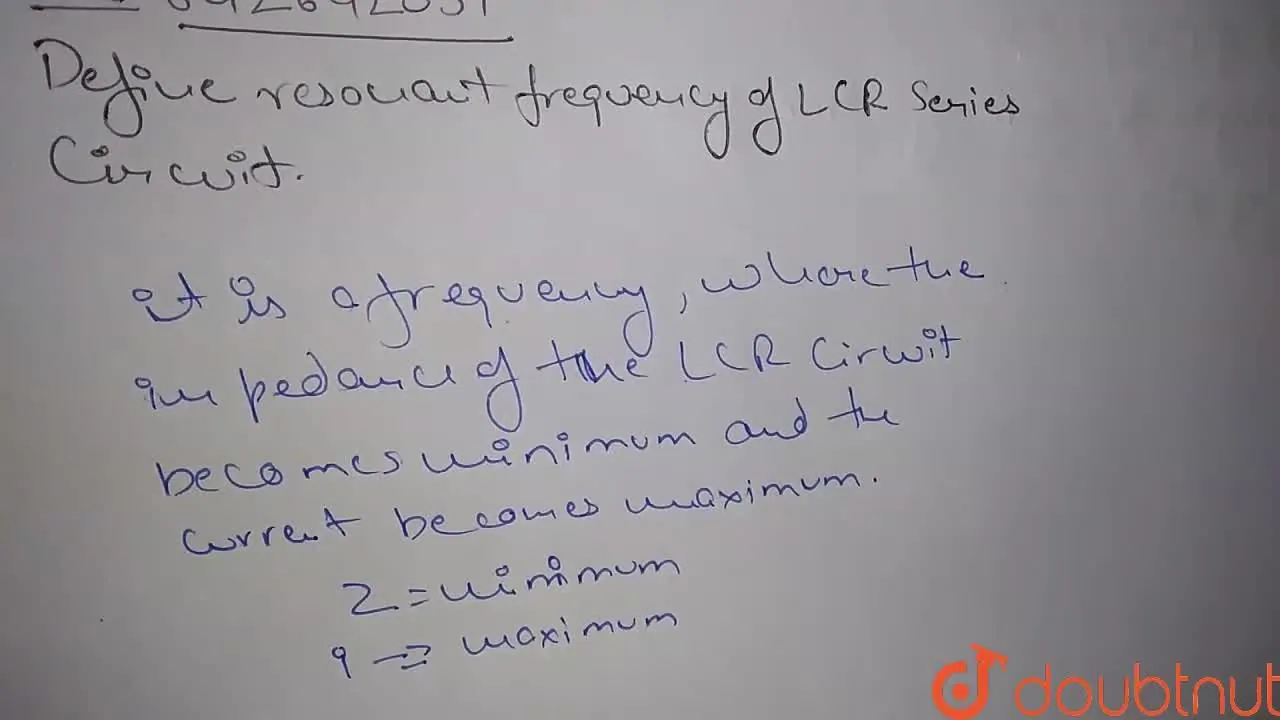 Define resonant frequency of LCR Series
Circuit.
it is a frequency, where the
impedance of the LCR Circuit
becomes minimum and the
current becomes maximum.
Z = minimum
i → maximum
doubtnut